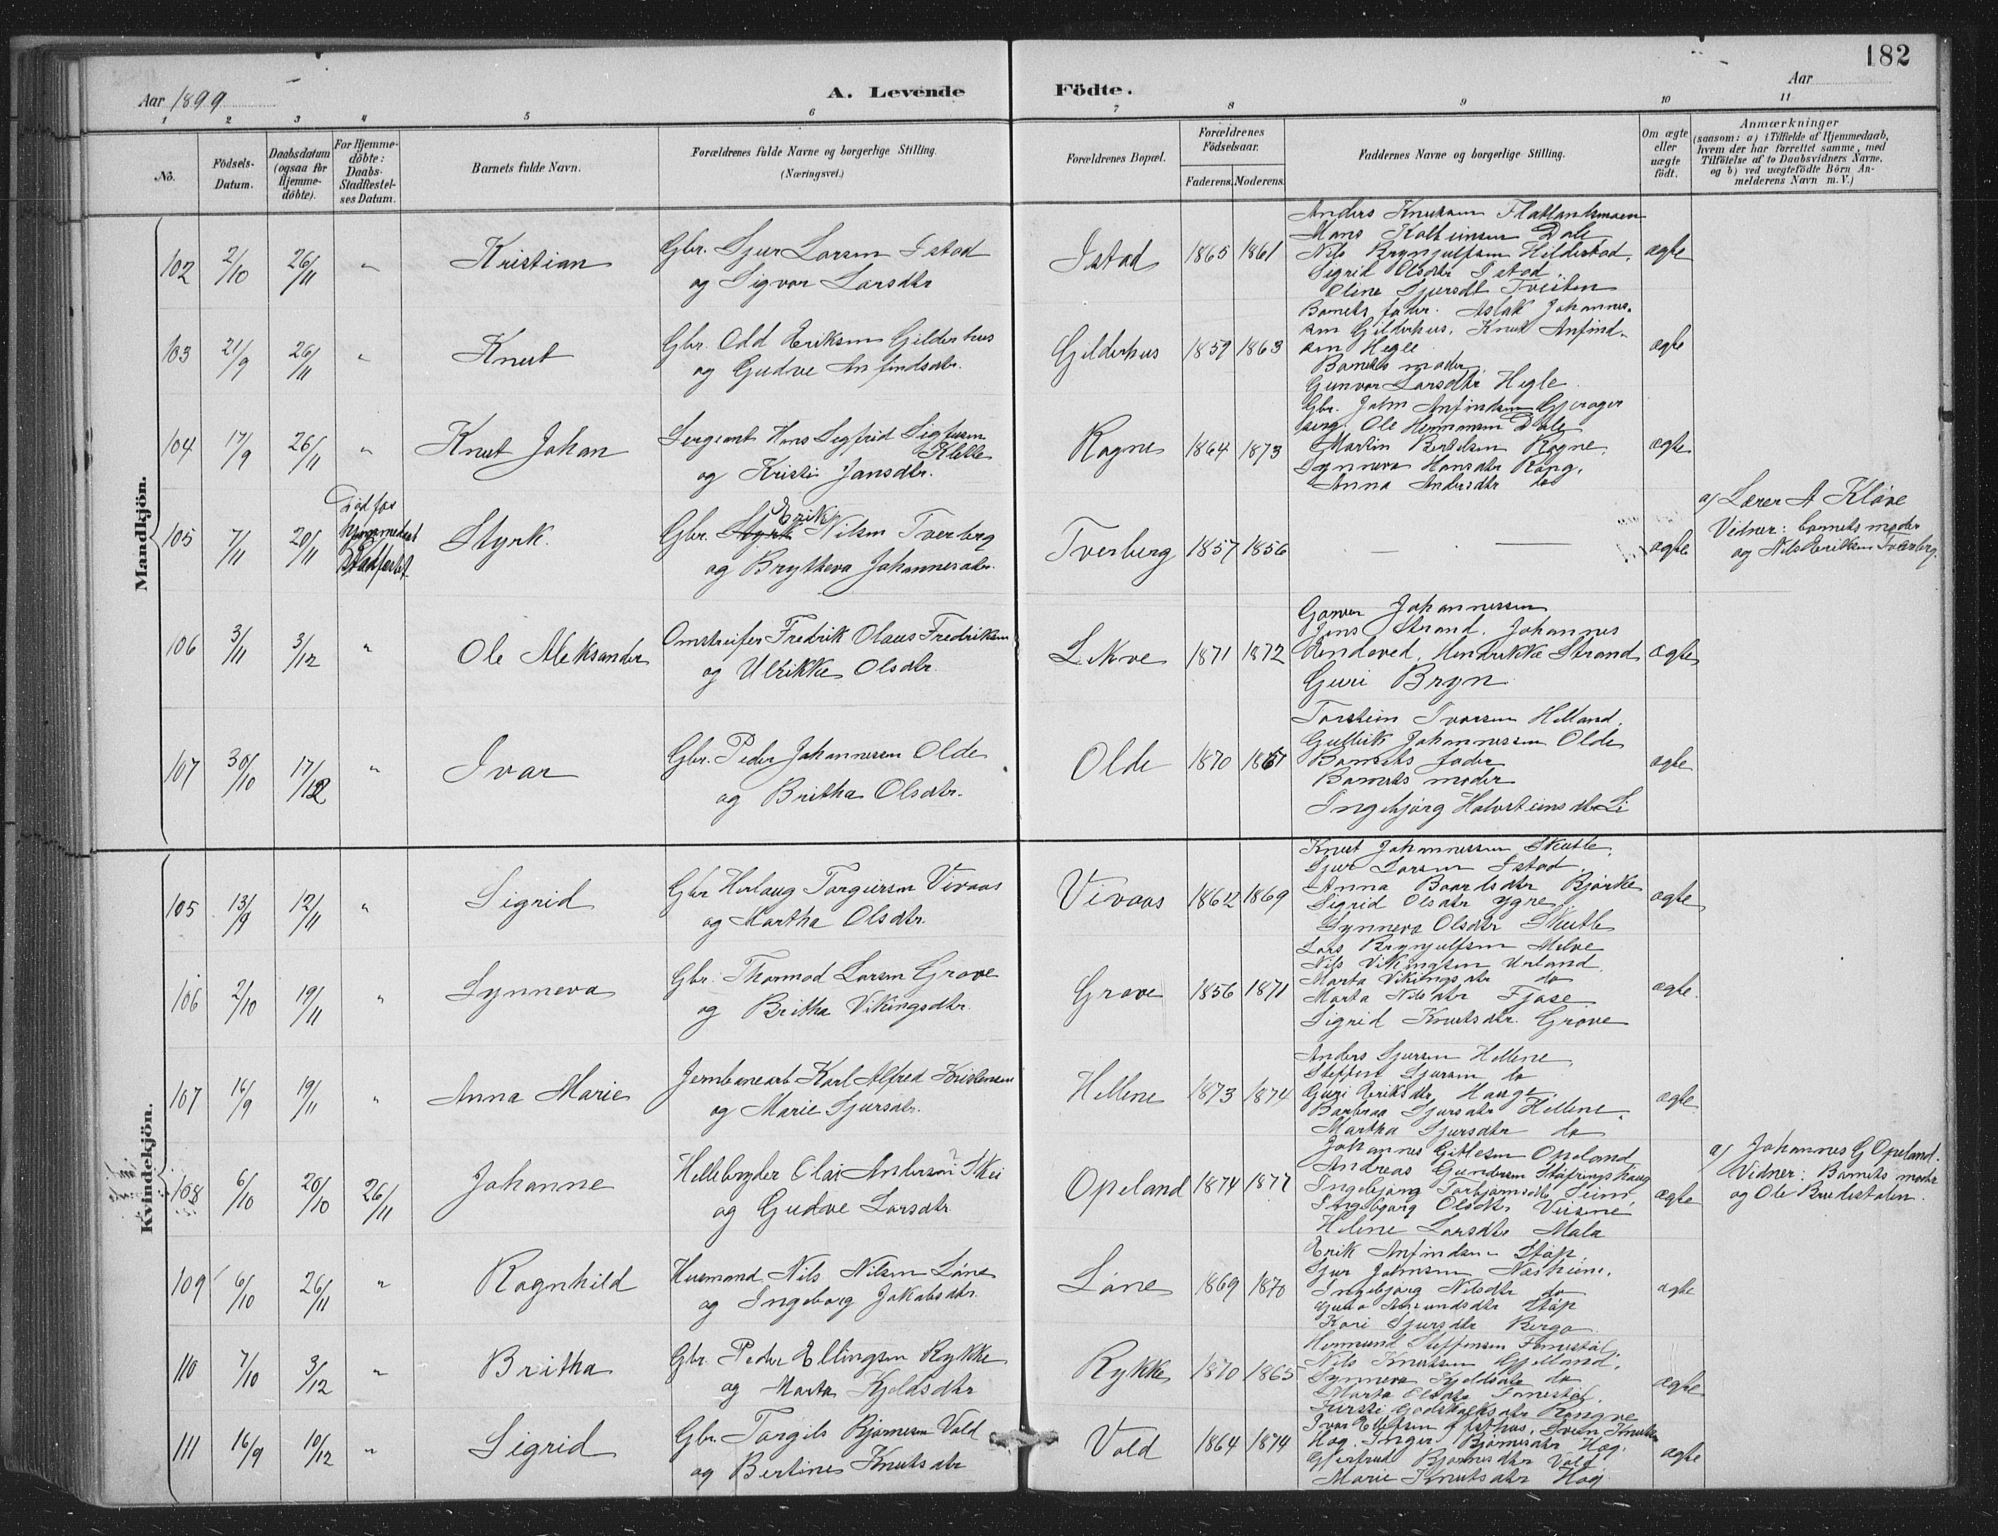 182
Aar 1899
A. Levende Födte.
Aar
1 2 3 4 5 6 7 8 9 10 11
No.
Födsels-Datum.
Daabsdatum (ogsaa för Hjemme-döbte).
For Hjemme-döbte: Daabs-Stadfestel-ses Datum.
Barnets fulde Navn.
Forældrenes fulde Navne og borgerlige Stilling. (Næringsvei.)
Forældrenes Bopæl.
Forældrenes Födselsaar.
Faderens. Moderens.
Faddernes Navne og borgerlige Stilling.
Om ægte eller uægte födt.
Anmærkninger
(saasom: a) i Tilfælde af Hjemmedaab, hvem der har forrettet samme, med Tilföielse af to Daabsvidners Navne. og b) ved uægtefödte Börn An-melderens Navn m. V.)
Mandkjön.
102 2/10 26/11 " Kristian
Gbr. Sjur Larsen Istad
og Sigvor Larsdtr
Istad 1865 1861
Anders Knutsen Flatlandsmoen
Mons Kolbeinsen Dale
Nils Brynjulfsen Hildestad.
Sigrid Olsdtr Istad.
Oline Sjursdt Tveiten
ægte
103 21/9 26/11 " Knut
Gbr. Odd Eriksen Gilderhus
og Gudve Anfindsdtr.
Gilderhus 1859 1863
Barnets fader. Aslak Johannes-
sen Gilderhus. Knut Anfind-
sen Hegle.
Barnets moder
Gunvor Larsdtr Hegle.
ægte
104 17/9 26/11 " Knut Johan
Sergeant Hans Segfrid Sigfusen
Klette
og Kristi Jansdtr.
Rogne 1864 1873
Gbr. John Anfindsen Gjerager
berg. Ole Hermansen Dale
Martin Bertelsen Rogne.
Synneva Hansdtr Rong.
Anna Andersdtr do
ægte
105 7/11 20/11
Död før
Hjemmedaab
Stadfestet
Styrk.
Gbr. Erik Nilsen Tverberg
og Brytheva Johannesdtr.
Tverberg 1857 1856 — —
ægte
a) Lærer A Kløve
Vidner: barnets moder
og Nils Eriksen Tverberg.
106 3/11 3/12 " Ole Aleksander
Omstreifer Fredrik Olaus Fredriksen
og Ulrikke Olsdtr.
Lekve 1871 1872
Johannessen
Jens Strand. Johannes
Rendeved. Hendrikke Strand
Guri Bryn
ægte
107 30/10 17/12 " Ivar
Gbr. Peder Johannesen Olde
og Britha Olsdtr.
Olde 1870 1867
Torstein Ivarsen Helland.
Gulleik Johannessen Olde
Barnets fader
Barnets moder
Ingebjörg Halvsteinsdtr Li
ægte
Kvindekjön.
105 13/9 12/11 " Sigrid
Gbr Herlaug Torgiersen Vivaas
og Martha Olsdtr.
Vivaas 1862 1869
Knut Johannessen Skutle.
Sjur Larsen Istad
Anna Baardsdtr Björke
Sigrid Olsdtr Ygre.
Synneva Olsdtr Skutle
ægte
106 2/10 19/11 " Synneva
Gbr. Thormod Larsen Grove
og Britha Vikingsdtr.
Grove 1856 1871
Lars Brynjulfsen Melve
Nils Vikingsen Urland.
Marta Vikingsdtr do
Marta Nilsdtr Fjose
Sigrid Knutsdtr. Grove
ægte.
107 16/9 19/11 " Anna Marie
Jernbanearb Karl Alfred Kristensen
og Marie Sjursdtr.
Hellene 1873 1874
Anders Sjursen Hellene.
Steffen Sjursen do
Guri Eriksdtr. Hauge
Barbraa Sjursdtr Hellene.
Martha Sjursdtr do
ægte
108 6/10 20/10 26/11 Johanne
Hellebryder Olai Andersen Skei
og Gudve Larsdtr.
Opeland 1874 1877
Johannes Gitlesen Opeland
Andreas Gundersen
Ingebjörg Torbjørnsdtr Seim.
Ingebjørg Olsdtr
Helene Larsdtr Mala
ægte
a) Johannes G Opeland.
Vidner: Barnets moder
og Ole Bredestølen.
109 6/10 26/11 " Ragnhild
Husmand Nils Nilsen Löne
og Ingeborg Jakobsdtr.
Löne 1869 1870
Erik Anfindsen Støp.
Sjur Johnsen Næsheim.
Ingebjørg Nilsdtr do
Guro Amundsdtr Støp
Kari Sjursdtr Berge.
ægte
110 7/10 3/12 " Britha
Gbr. Peder Ellingsen Rykke
og Marta Kjeldsdtr
Rykke 1870 1865
Hermund Steffensen Fenestøl.
Nils Knutsen Gjelland.
Synneva Kjeldsdtr do
Marta Olsdtr Fenestøl.
Kirsti Godskalksdtr Rongve
ægte
111 16/9 10/12 " Sigrid
Gbr. Torgils Bjørnesen Vold
og Bertine Knutsdtr
Vold 1864 1874
Ivar Ellefsen Sven Knutsen
Hog. Inger Bjørnesdtr Hog.
Gjertrud Bjørnesdtr Vold
Marie Knutsdtr Hog
ægte